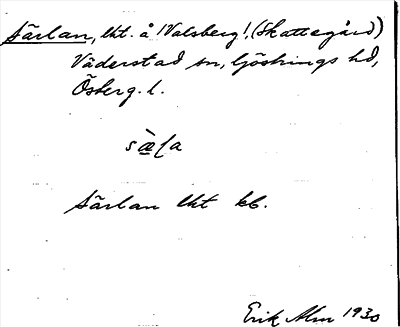 Särlan, lht. å !Valsberg!, (Skattegård)
Väderstad sn, Göstrings hd,
Österg. l.
Särlan lht kb.
Erik Alm 1930